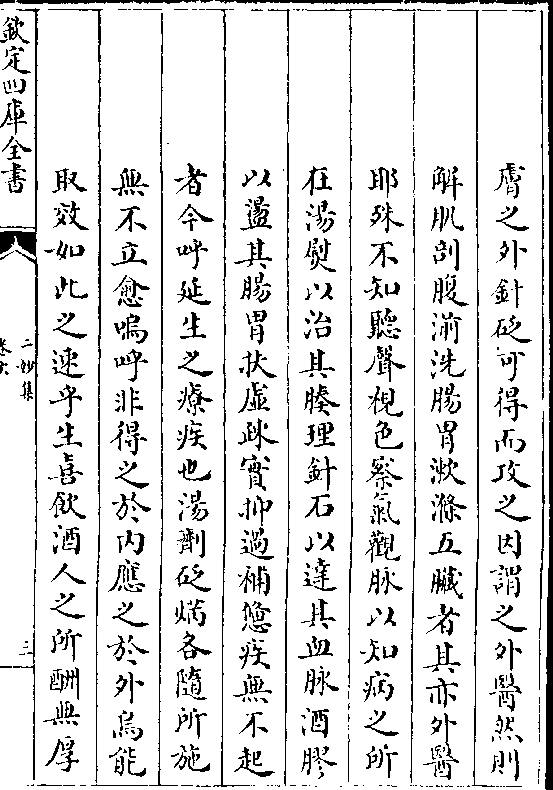 膚之外針砭可得而攻之因謂之外醫然則
解肌剖腹湔洗腸胃漱滌五臟者其亦外醫
耶殊不知聽聲視色察氣觀脉以知病之所
在湯熨以治其腠理針石以達其血脉酒膠
以盪其腸胃扶虛疎實抑過補愆疾無不起
者今呼延生之療疾也湯劑砭焫各隨所施
無不立愈嗚呼非得之於内應之於外烏能
取效如此之速乎生喜飲酒人之所酬無厚
欽定四庫全書
二妙集
卷六
三